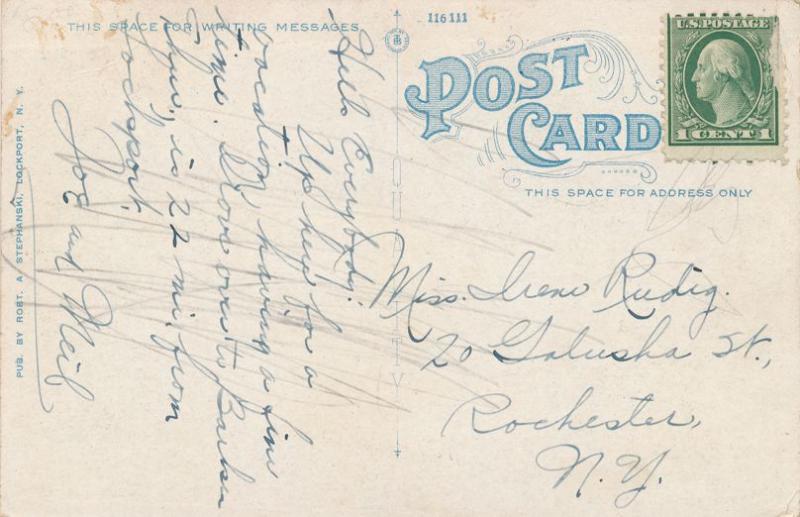 THIS SPACE FOR WRITING MESSAGES
116111
POST
CARD
U.S. POSTAGE
1 CENT 1
THIS SPACE FOR ADDRESS ONLY
Hello Everybody.
Up here for a
vacation, having a fine
time. Drove over to Barker
is 22 mi. from
Lockport.
Joe and Neil
Miss. Irene Rudig.
20 Galusha St.,
Rochester,
N.Y.
PUB. BY ROBT. A STEPHANSKI, LOCKPORT, N. Y.
QUALITY